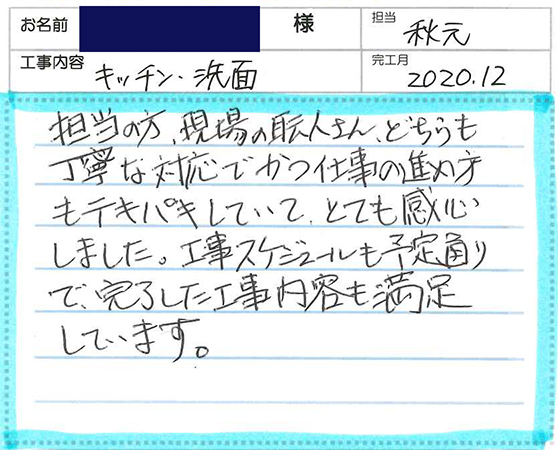 お名前 様 担当 秋元
工事内容 キッチン・洗面 完工月 2020.12
担当の方、現場の職人さん、どちらも
丁寧な対応でかつ仕事の進め方
もテキパキしていて、とても感心
しました。工事スケジュールも予定通り
で、完了した工事内容も満足
しています。